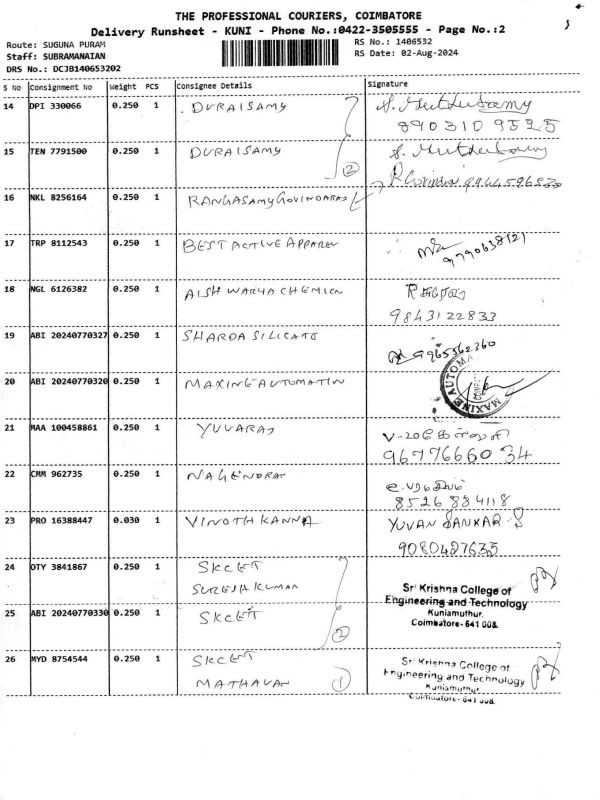 THE PROFESSIONAL COURIERS, COIMBATORE
Delivery Runsheet - KUNI - Phone No.:0422-3505555 - Page No.:2
Route: SUGUNA PURAM
RS No.: 1406532
Staff: SUBRAMANAIAN
RS Date: 02-Aug-2024
DRS No.: DCJB140653202
S No Consignment No Weight PCS Consignee Details Signature
14 DPI 330066 0.250 1 DURAISAMY
8903109525
15 TEN 7791500 0.250 1 DURAISAMY
2
16 NKL 8256164 0.250 1 RANGASAMY GOVINDARAJ
17 TRP 8112543 0.250 1 BEST ACTIVE APPAREL
18 NGL 6126382 0.250 1 AISHWARYA CHEMICN
9843122833
19 ABI 20240770327 0.250 1 SHARDA SILICATE
9965562360
20 ABI 20240770320 0.250 1 MAXINE AUTOMATIN
MAXINE AUTOMA
21 MAA 100458861 0.250 1 YUVARAJ
9677666034
22 CMM 962735 0.250 1 NAGENDRAN
8526884118
23 PRO 16388447 0.030 1 VINOTH KANNA YUVAN SANKAR S
9080427635
24 OTY 3841867 0.250 1 SKCET
SURESH KUMAR
Sri Krishna College of
Engineering and Technology
Kuniamuthur,
Coimbatore- 641 008.
25 ABI 20240770330 0.250 1 SKCET
2
26 MYD 8754544 0.250 1 SKCET
MATHAVAN
1
Sri Krishna College of
Engineering and Technology
Kuniamuthur,
Coimbatore- 641 008.